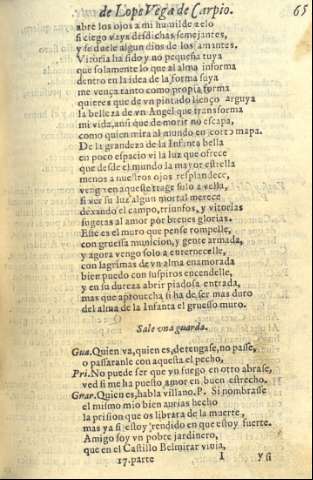 de Lope Vega de Carpio. 65
abre los ojos a mi humilde zelo
si ciego vays desdichas semejantes,
y se duele algun dios de los amantes.
Vitoria ha sido y no pequeña tuya
que solamente lo que al alma informa
dentro en la idea de la forma suya
me vença tanto como propia forma
quieres que de vn pintado lienço arguya
la belleza de vn Angel que transforma
mi vida, ansi que de morir no escapa,
como quien mira al mundo en corto mapa.
De la grandeza de la Infanta bella
en poco espacio vi la luz que ofrece
que desde el mundo la mayor estrella
menos a nuestros ojos resplandece,
vengo en aqueste trage solo a vella,
si ver su luz algun mortal merece
dexando el campo, triunfos, y vitorias
sugetas al amor por breues glorias.
Este es el muro que pense rompelle,
con gruessa municion, y gente armada,
y agora vengo solo a enternecelle,
con lagrimas de vn alma enamorada
bien puedo con suspiros encendelle,
y en su dureza abrir piadosa entrada,
mas que aprouecha si ha de ser mas duro
del alma de la Infanta el gruesso muro.
Sale vna guarda.
Gua. Quien va, quien es, detengase, no passe,
o passaranle con aquesta el pecho,
Pri. No puede ser que vn fuego en otro abrase,
ved si me ha puesto amor en buen estrecho.
Guar. Quien es, habla villano. P. Si nombrasse
el mismo mio bien aurias hecho
la prision que os librara de la muerte,
mas ya si estoy rendido en que estoy fuerte.
Amigo soy vn pobre jardinero,
que en el Castillo Belmirar viuia,
17. parte I y si